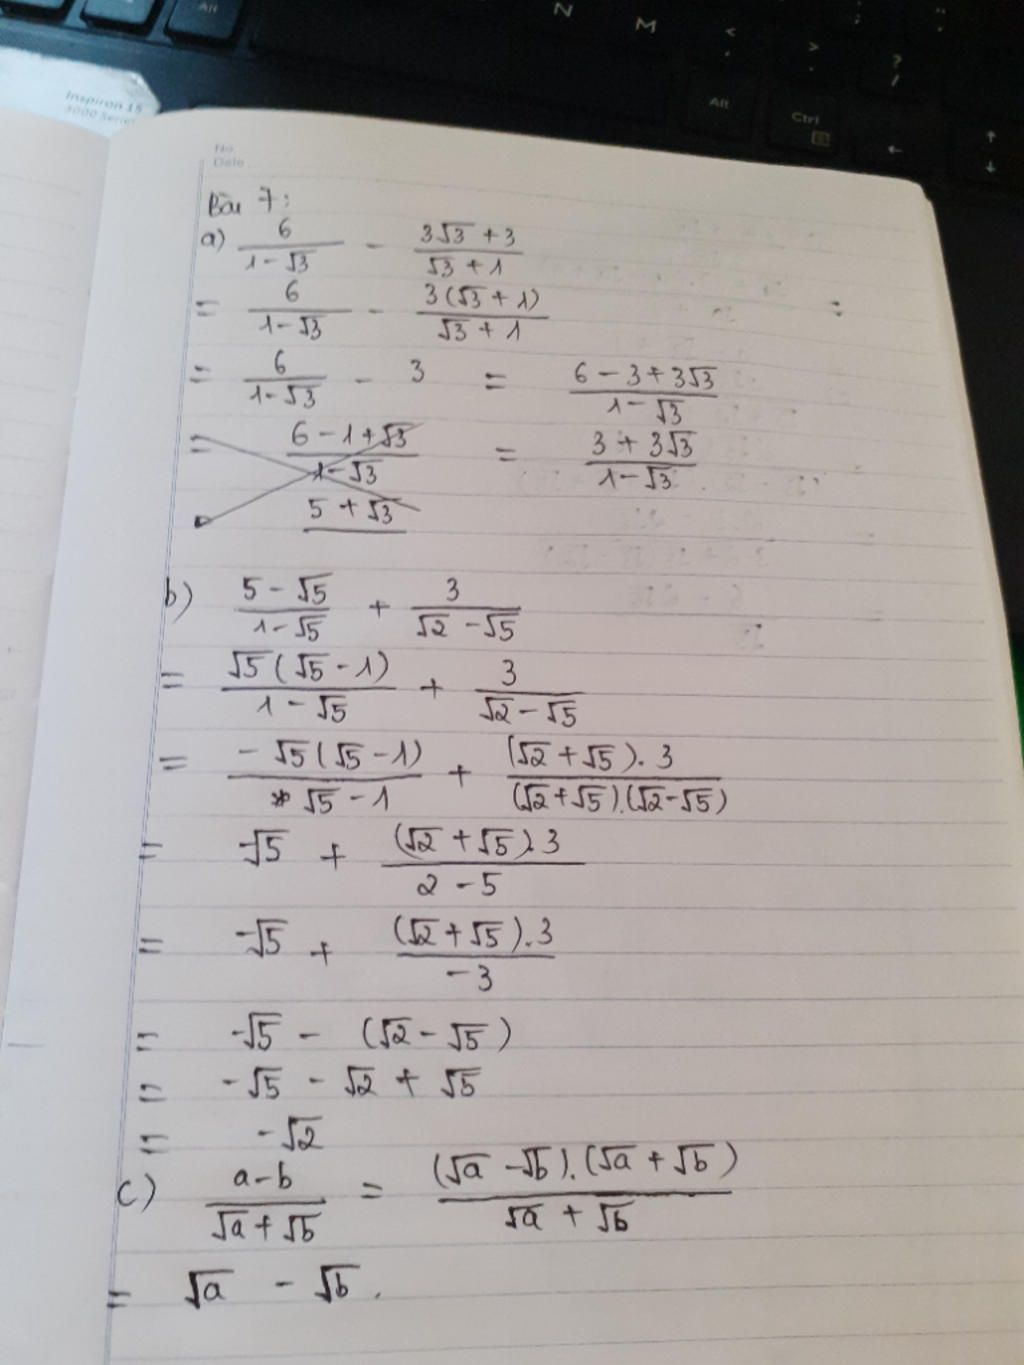 Alt
N
M
<
,
>
.
?
/
;
:
Alt
Ctrl
Inspiron 15
3000 Series
No.
Date
Bài 7:
a) 6/(1-√3) - (3√3 + 3)/(√3 + 1)
= 6/(1-√3) - 3(√3 + 1)/(√3 + 1)
= 6/(1-√3) - 3 = (6 - 3 + 3√3)/(1-√3)
= (6 - 1 + √3)/(1-√3) = (3 + 3√3)/(1-√3)
5 + √3
b) (5 - √5)/(1-√5) + 3/(√2 - √5)
= √5(√5 - 1)/(1 - √5) + 3/(√2 - √5)
= -√5(√5 - 1)/(√5 - 1) + (√2 + √5).3/((√2+√5).(√2-√5))
= -√5 + (√2 + √5).3/(2 - 5)
= -√5 + (√2 + √5).3/(-3)
= -√5 - (√2 - √5)
= -√5 - √2 + √5
= -√2
c) (a-b)/(√a + √b) = (√a - √b).(√a + √b)/(√a + √b)
= √a - √b.